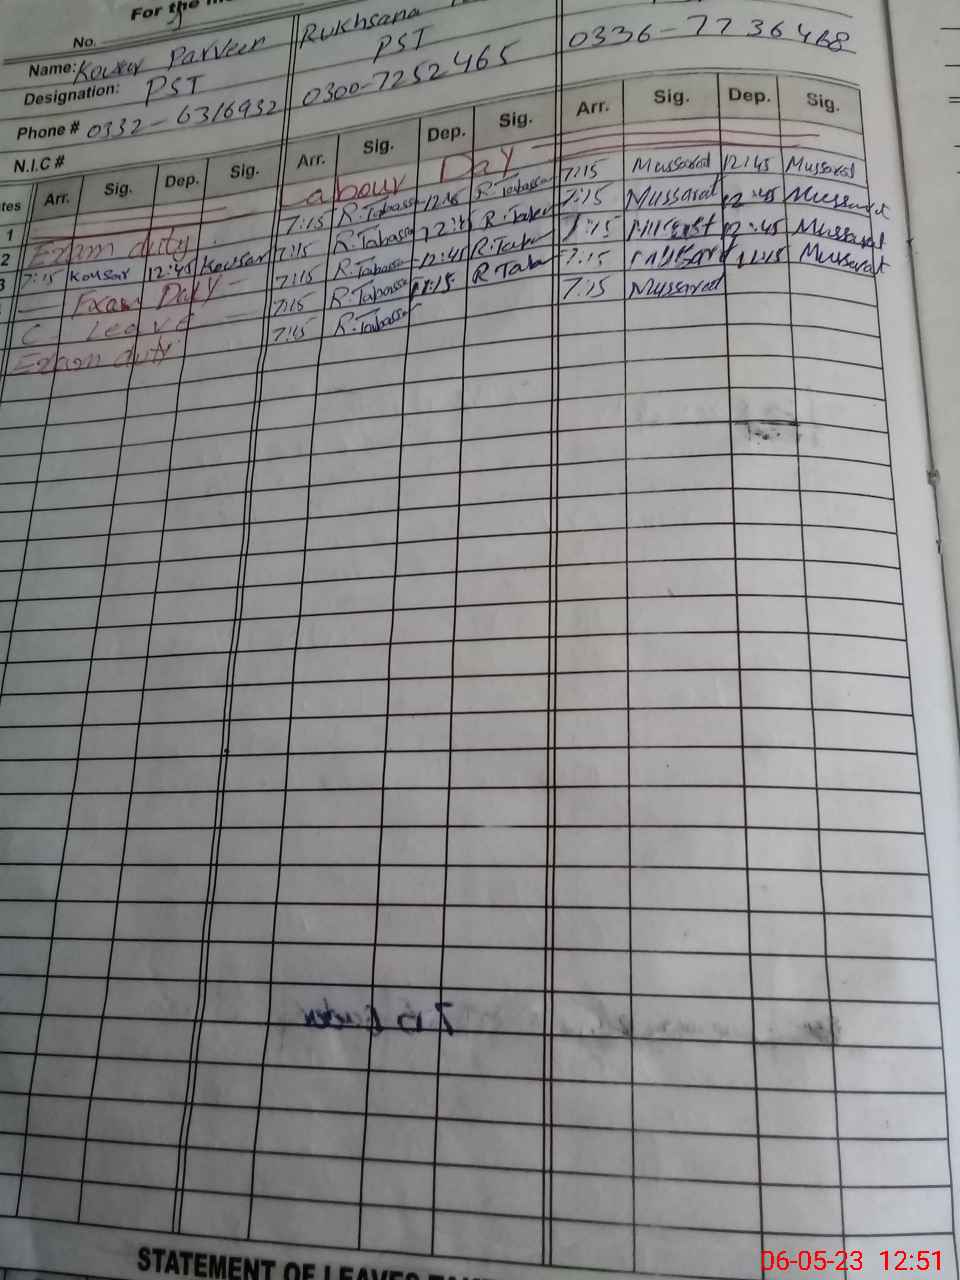 For the
No.
Name: Kousar Parveen Rukhsana
Designation: PST PST
Phone # 0332-6316932 0300-7252465 0336-7736468
N.I.C #
tes Arr. Sig. Dep. Sig. Arr. Sig. Dep. Sig. Arr. Sig. Dep. Sig.
1 Labour Day
2 Exam duty. 7:15 R.Tabassa 12:45 R.Tabassa 7:15 Mussarat 12:45 Mussarat
3 7:15 Kousar 12:45 Kousar 7:15 R.Tabassa 12:45 R.Tabas 7:15 Mussarat 12:45 Mussarat
Exam Duty 7:15 R.Tabassa 12:45 R.Tab 7:15 12:45 Mussarat
C. Leave 7:15 R.Tabassa 11:15 R.Tab 7:15 11:15 Mussarat
Exam duty 7:15 R.Tabassa 7:15 Mussarat
STATEMENT OF LEAVES
06-05-23 12:51